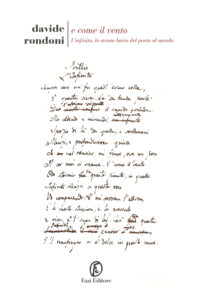 davide
rondoni
e come il vento
L'infinito, lo strano bacio del poeta al mondo
Idillio
L'Infinito
Sempre caro mi fu quest'ermo colle,
E questa siepe, che da tanta parte
il guardo esclude.
Ma sedendo e mirando,
Spazio di là da quella, e sovrumani
Silenzi, e profondissima quiete
Io nel pensier mi fingo, ove per poco
Il cor non si spaura. E come il vento
Odo stormir fra queste piante, io quello
Infinito silenzio a questa voce
Vo comparando: E mi sovvien l'eterno,
E le morte stagioni, e la presente
E viva, e 'l suon di lei. Così tra questa
E il naufragar m'è dolce in questo mare.
Fazi Editore